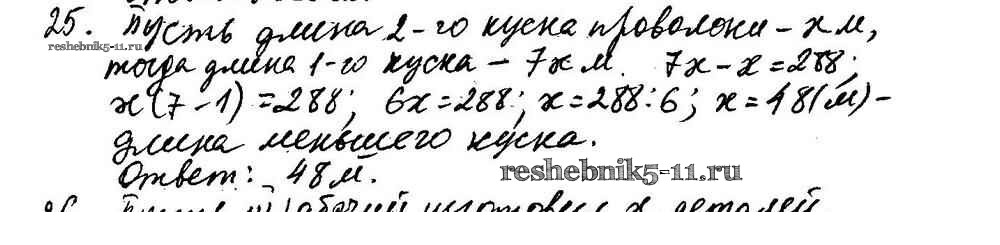 25. Пусть длина 2-го куска проволоки – х м,
reshebnik5-11.ru
тогда длина 1-го куска – 7х м. 7х – х = 288;
х(7 – 1) = 288; 6х = 288; х = 288 : 6; х = 48(м) –
длина меньшего куска.
Ответ: 48 м.
reshebnik5-11.ru
26. рабочий изготовил х деталей